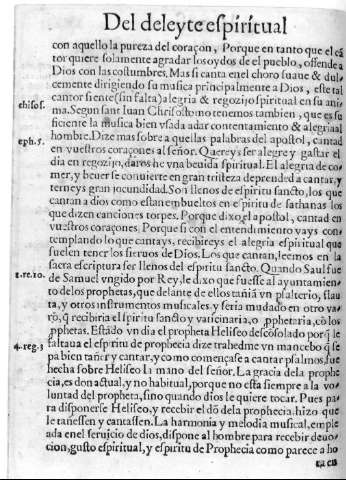 Del deleyte espiritual
con aquello la pureza del coraçon, Porque en tanto que el cã
tor quiere solamente agradar los oydos de el pueblo, offende a
Dios con las costumbres. Mas si canta en el choro suaue & dul-
cemente dirigiendo su musica principalmente a Dios, este tal
cantor siente (sin falta) alegria & regozijo spiritual en su ani
ma. Segun sant Iuan Chrisostomo tenemos tambien, que es su
chisos.
ficiente la musica bien vsada a dar contentamiento & alegria al
hombre. Dize mas sobre aquellas palabras del apostol, cantad
ephe.5.
en vuestros coraçones al señor. Quereys ser alegre y gastar el
dia en regozijo, dares he vna beuida spiritual. El alegria de co-
mer, y beuer se conuierte en gran tristeza deprended a cantar, y
terneys gran jocundidad. Son llenos de espiritu sancto, los que
cantan a dios como estan embueltos en espiritu de sathanas los
que dizen canciones torpes. Porque dixo el apostol, cantad en
vuestros coraçones. Porque si con el entendimiento vays con-
templando lo que cantays, recibireys el alegria espiritual que
suelen tener los sieruos de Dios. Los que cantan, leemos en la
sacra escriptura ser llenos del espiritu sancto. Quando Saul fue
1.re.10.
de Samuel vngido por Rey, le dixo que fuesse al ayuntamien-
to de los prophetas, que delante de ellos tañiã vn psalterio, flau
ta, y otros instrumentos musicales, y seria mudado en otro va-
rõ, q̃ recibiria el spiritu sancto y vaticinaria, o pphetaria, cõ los
pphetas. Estãdo vn dia el propheta Heliseo descõsolado porq̃ le
faltaua el espiritu de prophecia dize trahedme vn mancebo q̃ se
4.reg.3
pa bien tañer y cantar, y como començase a cantar psalmos, fue
hecha sobre Heliseo la mano del señor. La gracia de la prophe
cia, es don actual, y no habitual, porque no esta siempre a la vo-
luntad del propheta, sino quando dios le quiere tocar. Pues pa
ra disponerse Heliseo, y recebir el dõ dela prophecia hizo que
le tañessen y cantassen. La harmonia y melodia musical, emple
ada enel seruicio de dios, dispone al hombre para recebir deuo-
cion, gusto espiritual, y espiritu de Prophecia como parece a ho